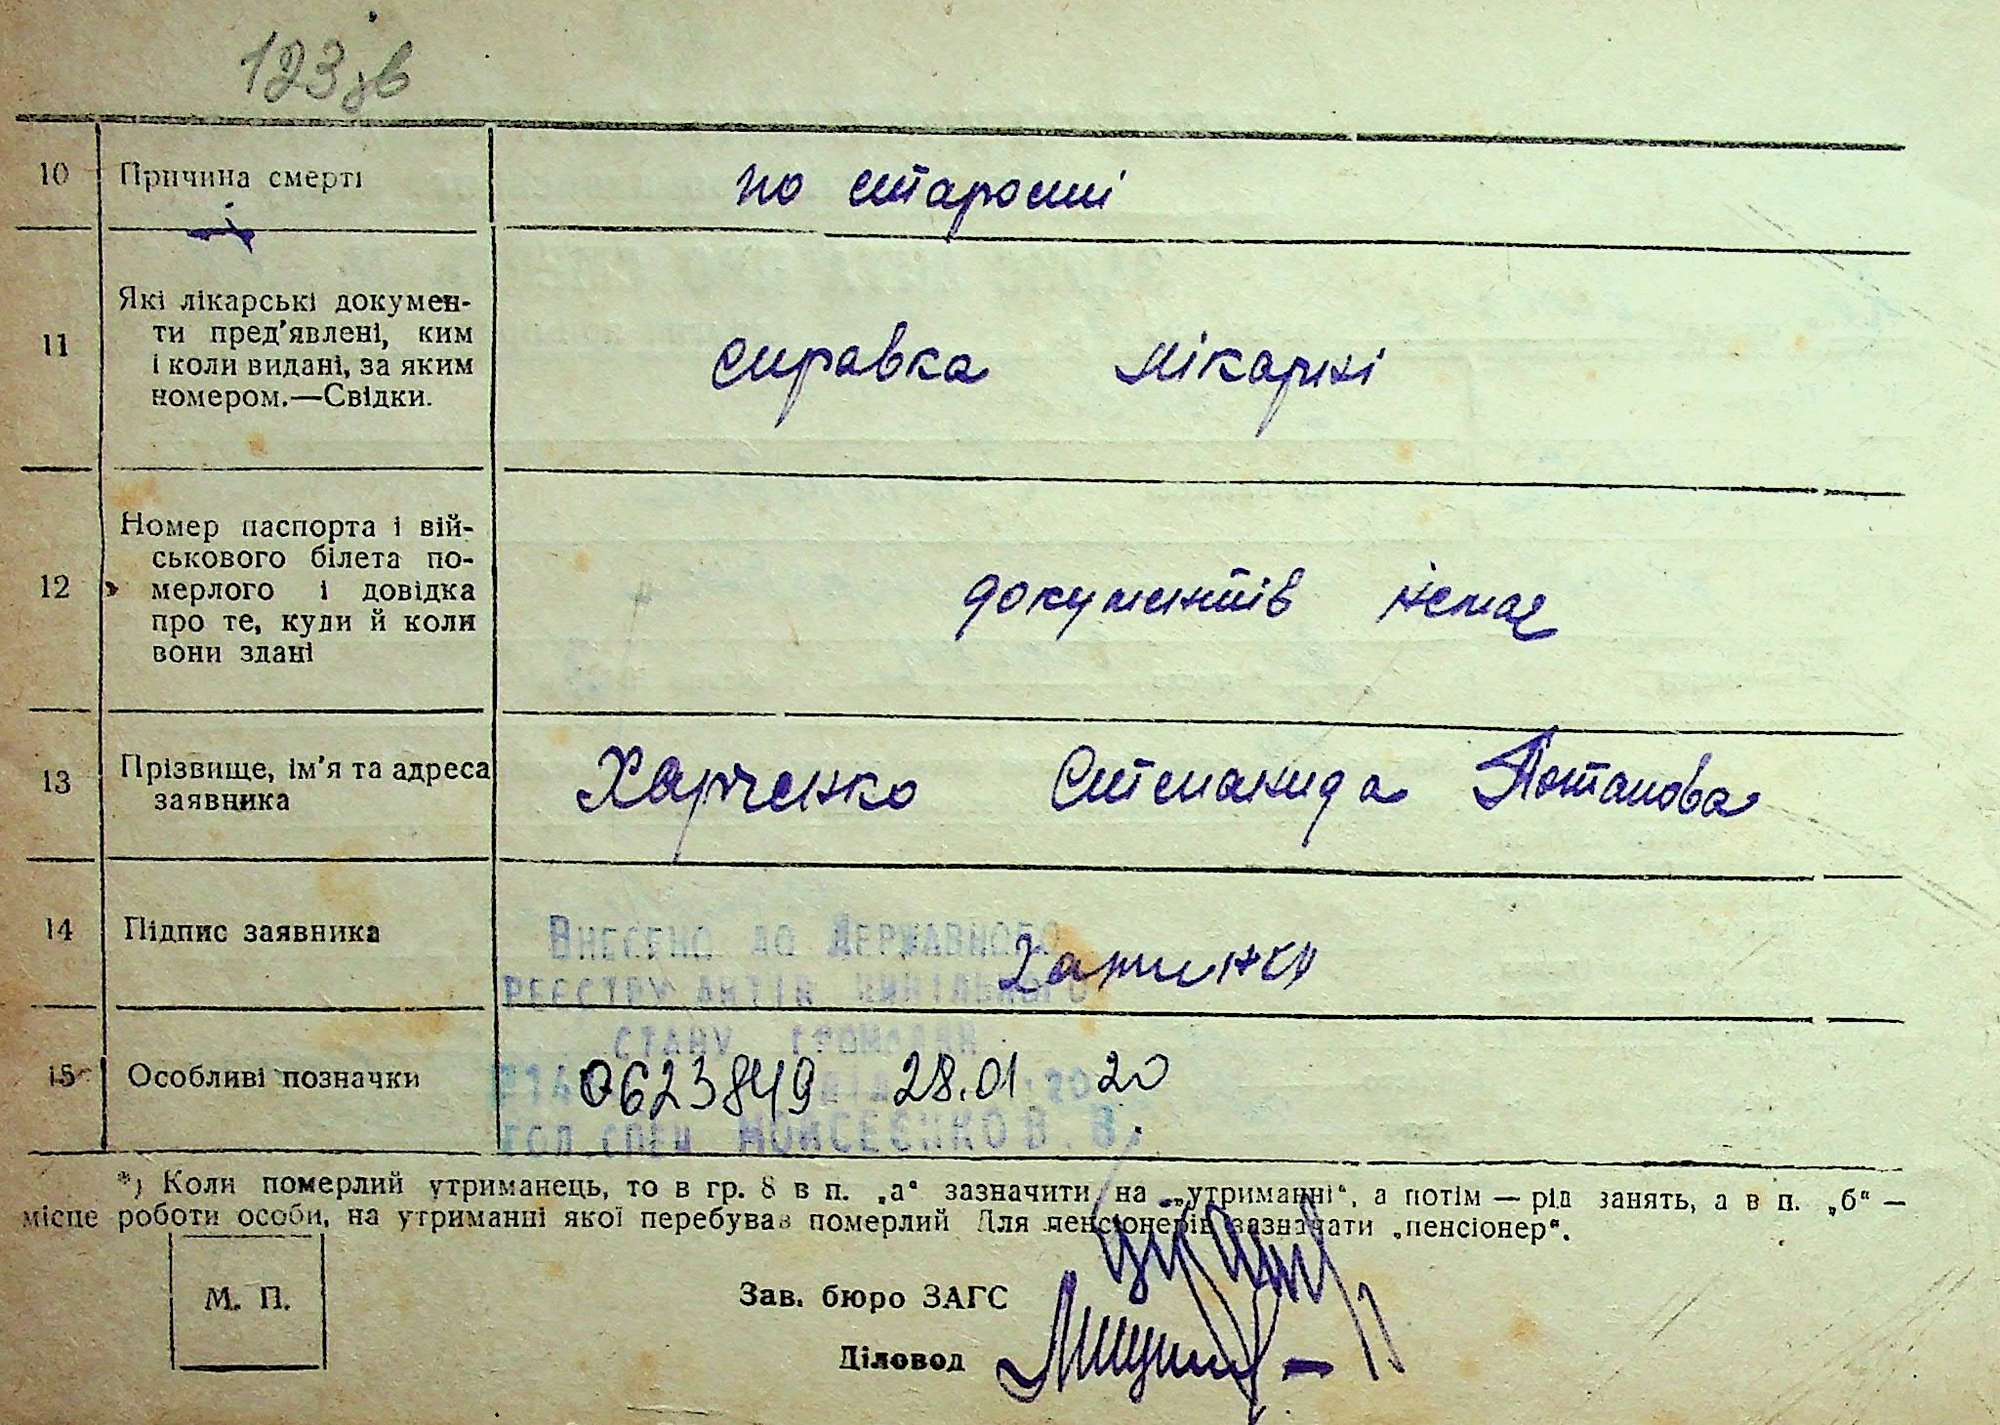 123зв
10 Причина смерті по старості
11 Які лікарські докумен-
ти пред'явлені, ким
і коли видані, за яким
номером.—Свідки.
справка лікарні
12 Номер паспорта і вій-
ськового білета по-
мерлого і довідка
про те, куди й коли
вони здані
документів немає
13 Прізвище, ім'я та адреса
заявника
Харченко Степанида Потапова
14 Підпис заявника
Внесено до Державного
реєстру актів цивільного
стану громадян
15 Особливі позначки 0623849 28.01 2020
гол. спец Моисеєнко В. В.
*) Коли померлий утриманець, то в гр. 8 в п. „а“ зазначити на „утриманні“, а потім — рід занять, а в п. „б“ —
місце роботи особи, на утриманні якої перебував померлий Для пенсіонерів зазначати „пенсіонер“.
М. П.
Зав. бюро ЗАГС
Діловод